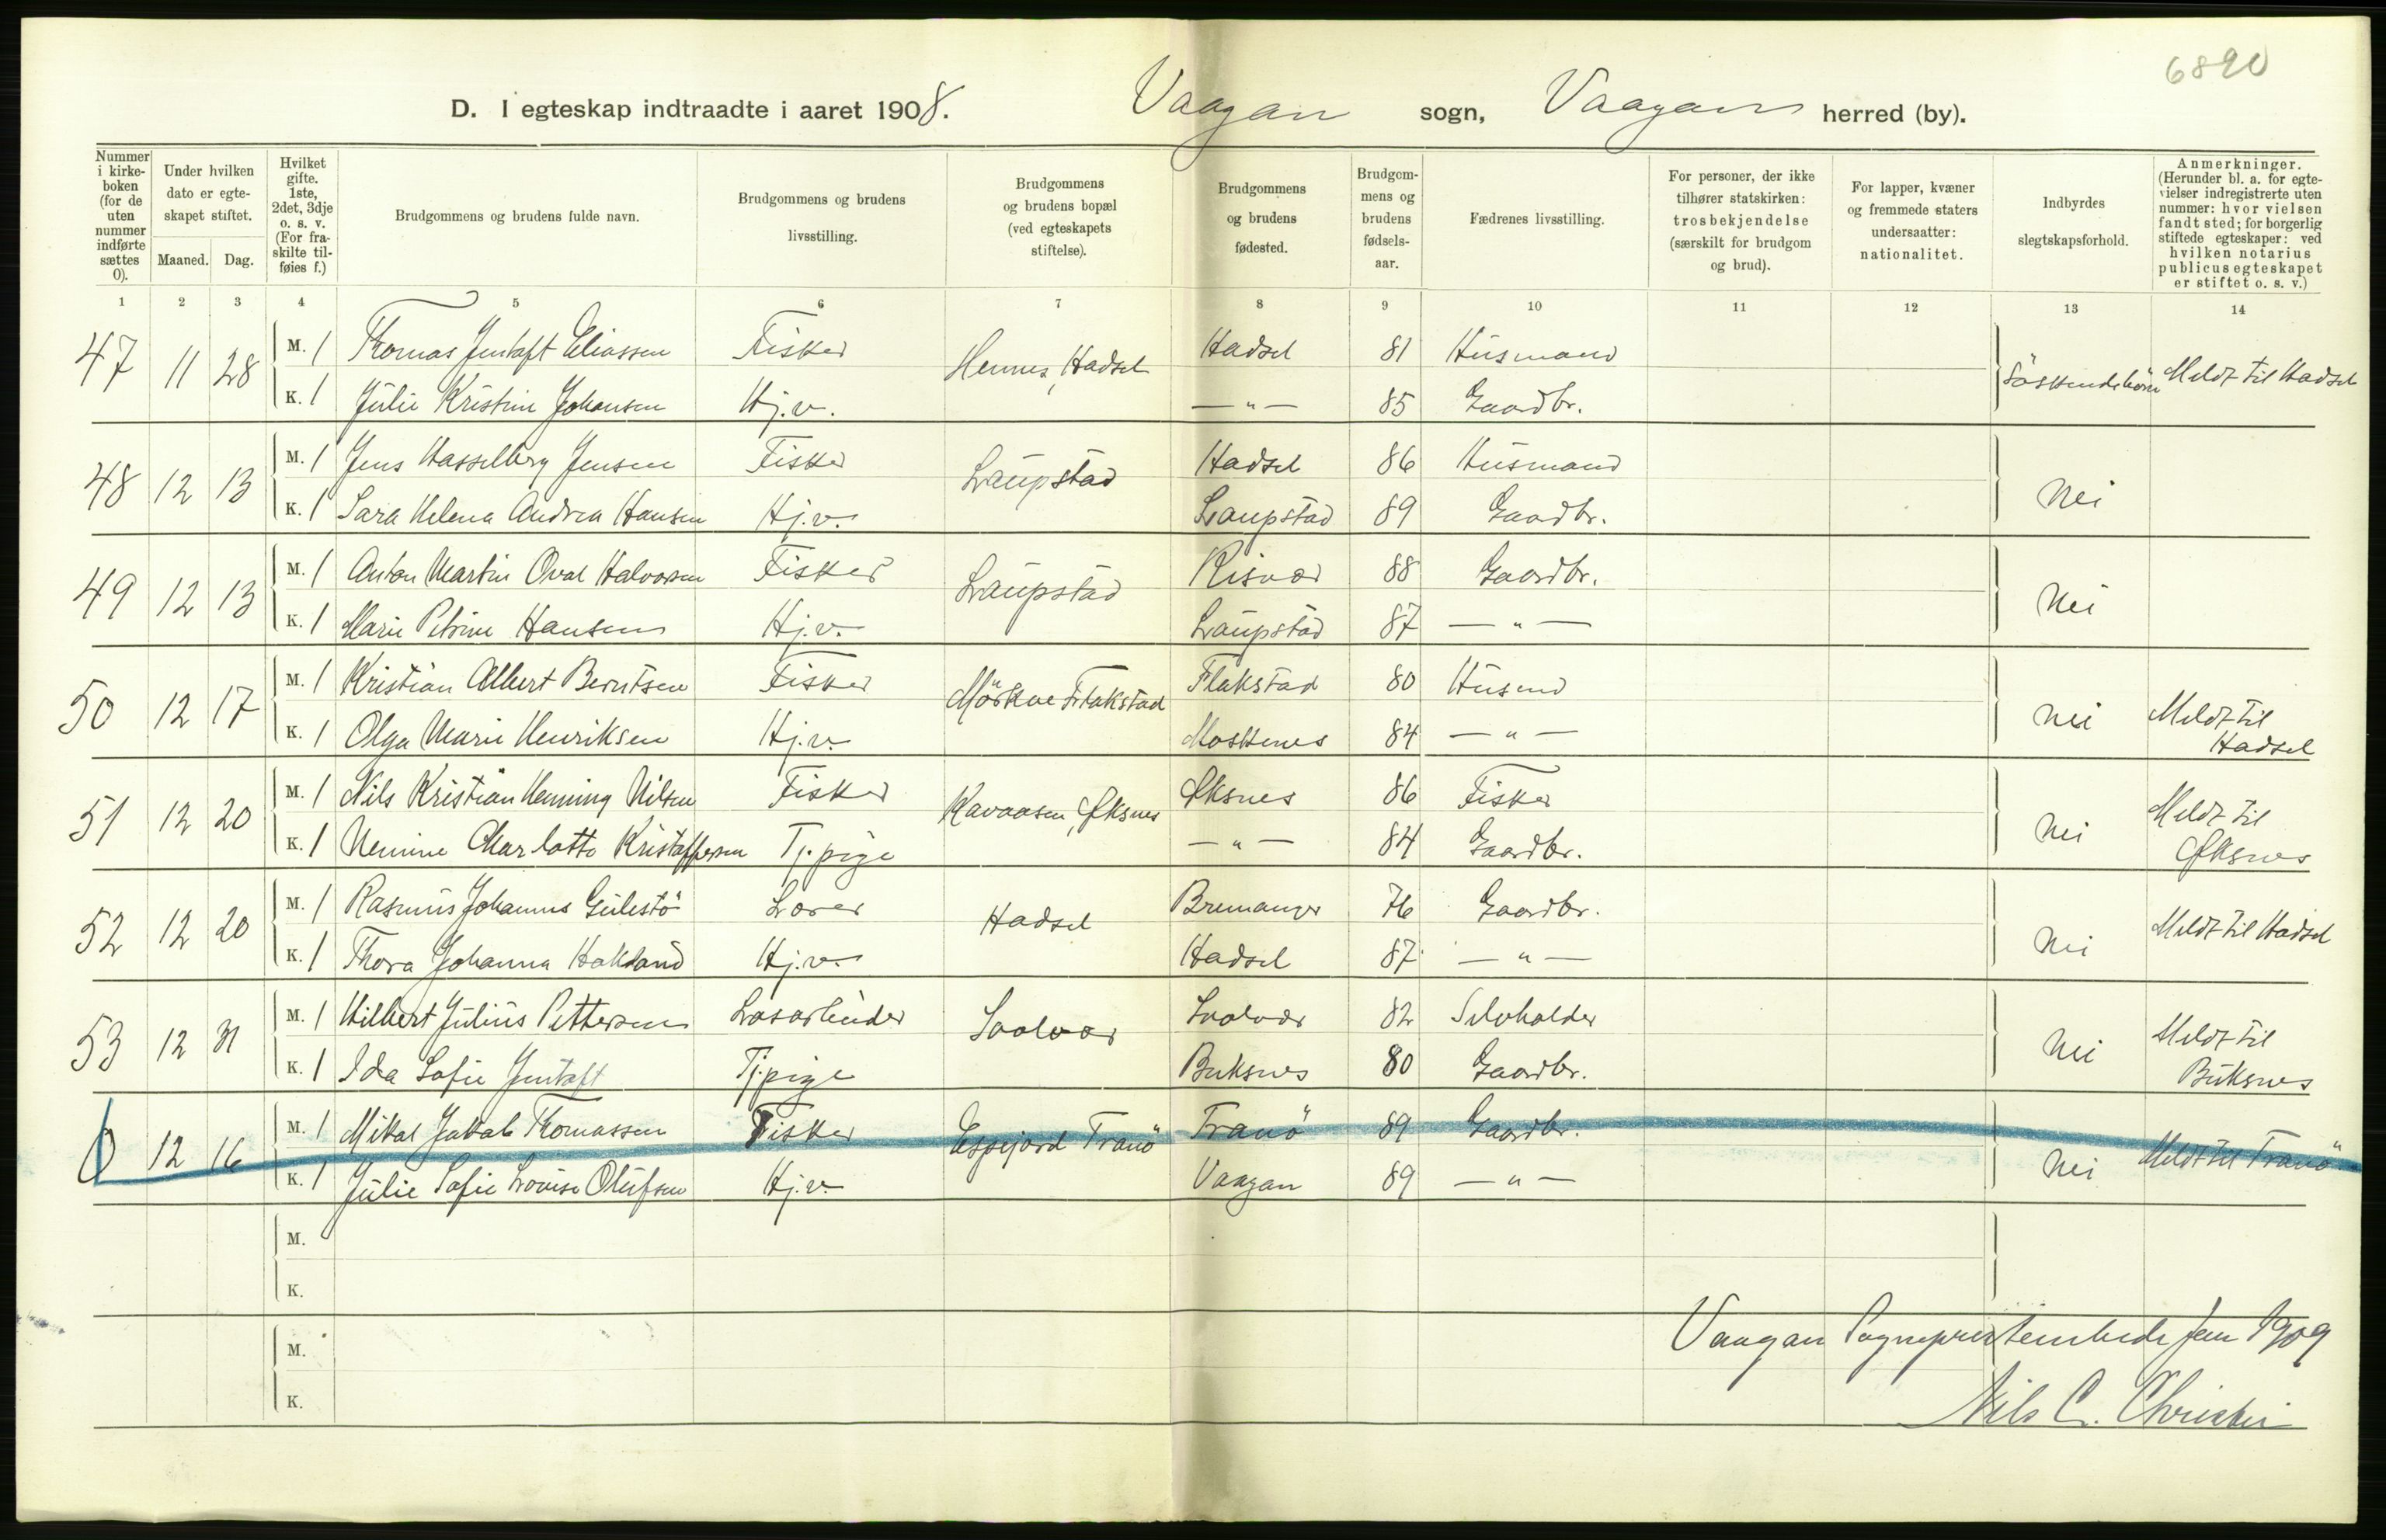 6890
D. I egteskap indtraadte i aaret 1908. Vaagan sogn, Vaagans herred (by).
Nummer i kirkeboken (for de uten nummer indførte sættes 0). Under hvilken dato er egteskapet stiftet. Maaned. Dag. Hvilket gifte. 1ste, 2det, 3dje o. s. v. (For fraskilte tilføies f.) Brudgommens og brudens fulde navn. Brudgommens og brudens livsstilling. Brudgommens og brudens bopæl (ved egteskapets stiftelse). Brudgommens og brudens fødested. Brudgommens og brudens fødselsaar. Fædrenes livsstilling. For personer, der ikke tilhører statskirken: trosbekjendelse (særskilt for brudgom og brud). For lapper, kvæner og fremmede staters undersaatter: nationalitet. Indbyrdes slegtskapsforhold. Anmerkninger. (Herunder bl. a. for egtevielser indregistrerte uten nummer: hvor vielsen fandt sted; for borgerlig stiftede egteskaper: ved hvilken notarius publicus egteskapet er stiftet o. s. v.)
1 2 3 4 5 6 7 8 9 10 11 12 13 14
47 11 28 M. 1 Thomas Jentoft Eliassen Fisker Hennes, Hadsel Hadsel 81 Husmand Söskendebörn Meldt til Hadsel
K. 1 Julie Kristine Johansen Hj.v. — " — 85 Gaardbr.
48 12 13 M. 1 Jens Hasselberg Jensen Fisker Laupstad Hadsel 86 Husmand Nei
K. 1 Sara Helena Andrea Hansen Hj.v. Laupstad 89 Gaardbr.
49 12 13 M. 1 Anton Martin Oval Halvorsen Fisker Laupstad Risvær 88 Gaardbr. Nei
K. 1 Marie Petrine Hansen Hj.v. Laupstad 87 — " —
50 12 17 M. 1 Kristian Albert Berntsen Fisker Flakstad Flakstad 80 Husmd Nei Meldt til Hadsel
K. 1 Olga Marie Henriksen Hj.v. Moskenes 84 — " —
51 12 20 M. 1 Nils Kristian Henning Nilsen Fisker Kavaasen, Øksnes Øksnes 86 Fisker Nei Meldt til Øksnes
K. 1 Charlotte Kristoffersen Tj. pige — " — 84 Gaardbr.
52 12 20 M. 1 Rasmus Johannes Gulestö Lærer Hadsel Bremanger 76 Gaardbr. Nei Meldt til Hadsel
K. 1 Thora Johanna Hokland Hj.v. Hadsel 87 — " —
53 12 31 M. 1 Hilbert Julius Pettersen Løsarbeider Svolvær Svolvær 82 Selvholder Nei Meldt til Buksnes
K. 1 Ida Sofie Jentoft Tj.pige Buksnes 80 Gaardbr.
0 12 16 M. 1 Mikal Jakob Thomassen Fisker Espejord Tranö Tranö 89 Gaardbr. Nei Meldt til Tranö
K. 1 Julie Sofie Lovise Olufsen Hj.v. Vaagan 89 — " —
M.
K.
M.
K.
Vaagan Sogneprestembede Jan 1909
Nils C. Christie